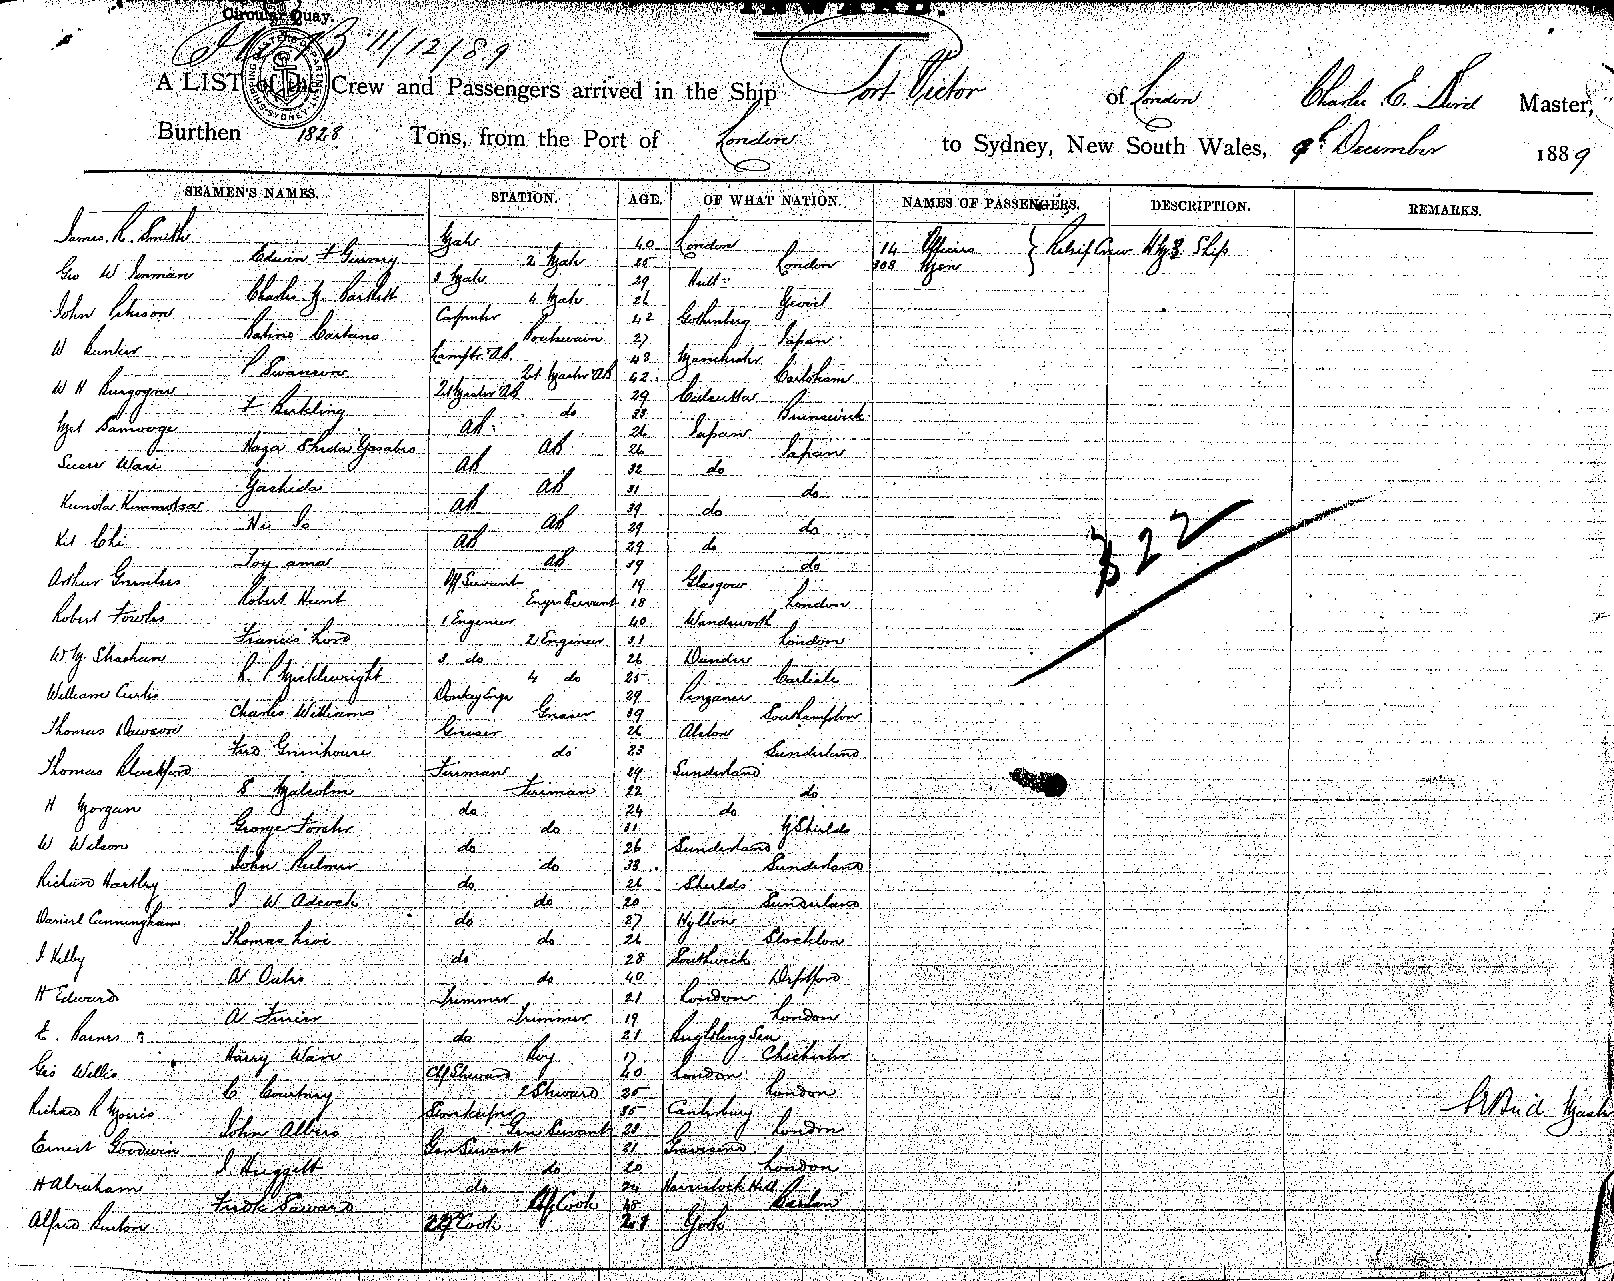 INWARD.
Circular Quay.
11/12/89
A LIST of the Crew and Passengers arrived in the Ship Port Victor of London Charles E. Bird Master,
Burthen 1828 Tons, from the Port of London to Sydney, New South Wales, 9th December 1889
SEAMEN'S NAMES. STATION. AGE. OF WHAT NATION. NAMES OF PASSENGERS. DESCRIPTION. REMARKS.
James R. Smith Mate 40 London 14 Officers } Relief Crew H M S Ship
Edwin F 2 Mate 25 London 308 Men
Geo W Inman 3 Mate 29 Hull
Charles G. Bartlett 4 Mate 26 Yeovil
John Carpenter 42 Gothenberg
Boatswain 27 Japan
W Bunker Lamptr AB 43 Manchester
P Swanson 2d Master AB 42
W H Burgoyne 2d Master AB 29 Calcutta
do 38 Brunswick
AB 26 Japan
AB 26 Japan
AB 32 do
AB 31 do
AB 39 do
AB 29 do
AB 29 do
Toy ama AB 39 do
322
Arthur Off Servant 19 Glasgow
Robert Hunt Engrs Servant 18 London
Robert Fowles 1 Engineer 40 Wandsworth
Francis Lord 2 Engineer 31 London
3 do 26 Dundee
R P Micklewright 4 do 25 Carlisle
William Curtis Donkey Engr 29 Penzance
Charles Williams Greaser 39 Southampton
Thomas Dawson Greaser 26 Alston
Fred Greenhouse do 23 Sunderland
Thomas Blackford Fireman 29 Sunderland
S Malcolm Fireman 22 do
H Morgan do 24 do
George Forster do 31 N Shields
W Wilson do 26 Sunderland
John Bulmer do 33 Sunderland
Richard Hartley do 26 Shields
J W Adcock do 20 Sunderland
Daniel Cunningham do 37 Hylton
Thomas do 26 Stockton
J Kelby do 28 Southwick
A Oates do 40 Deptford
H Edwards Trimmer 21 London
A Trimmer 19 London
E. Barnes do 21
Harry Ware Boy 17 Chichester
Geo Willis Chf Steward 40 London
C Courtney 2 Steward 25 London
Richard R Morris Storekeeper 35 Canterbury
John Albers Gen Servant 28 London
Ernest Goodwin Gen Servant 21 Gravesend
J Huggett do 20 London
H Abraham do 24 Haverstock Hill
Fredk Saward Chf Cook
Alfred Burton 2d Cook 21 York